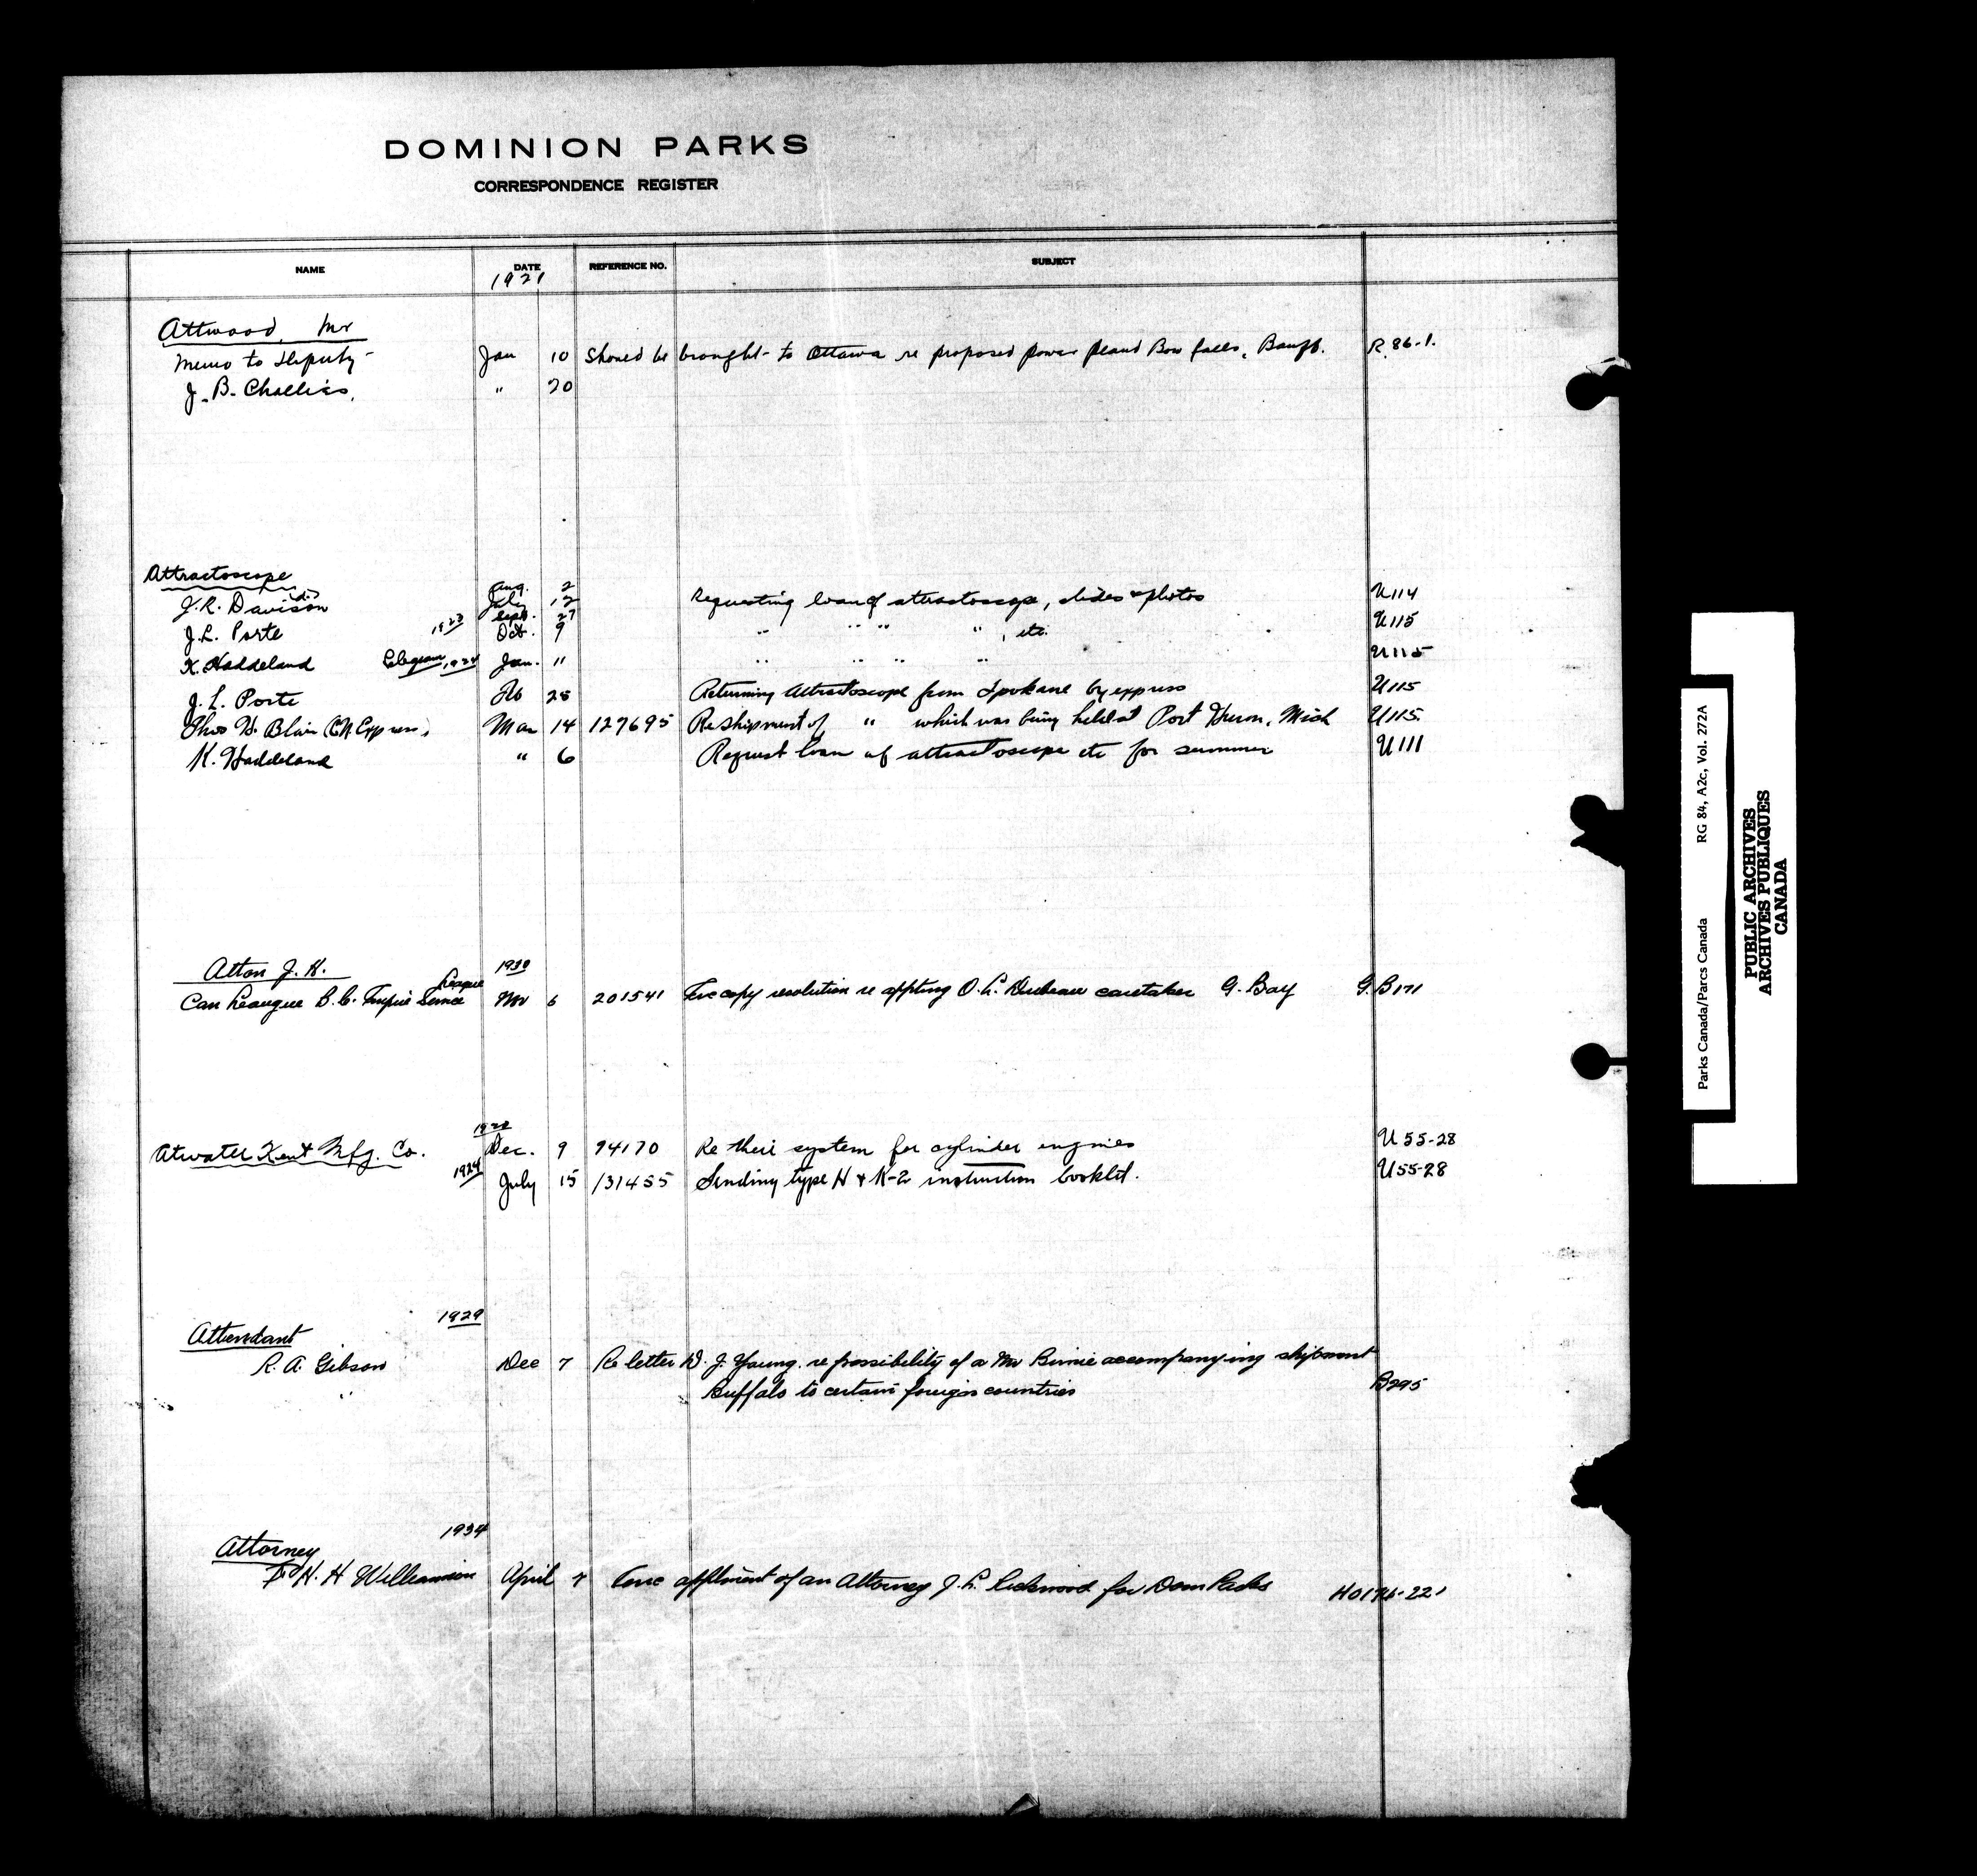 DOMINION PARKS
CORRESPONDENCE REGISTER
NAME DATE REFERENCE NO. SUBJECT
1921
Attwood, Mr
Memo to Deputy Jan 10 Should be brought to Ottawa re proposed power plant Bow falls, Banff. R.86-1.
J. B. Challies, " 20
Attractoscope
Aug. 2
J. R. Davison (d) July 12 Requesting loan of attractoscope, slides & photos U114
Sept. 27
J. L. Porte 1923 Oct. 9 " " " " , etc. U115
K. Haddeland Telegram 1924 Jan. 11 " " " " U115
J. L. Porte Feb 28 Returning attractoscope from Spokane by express U115
Thos H. Blair (CN Express) Mar 14 127695 Re shipment of " which was being held at Port Huron, Mich U115.
K. Haddeland " 6 Request loan of attractoscope etc for summer U111
Atton J. H.
Can Leaugue B.C. Empire Service League 6 201541 copy resolution re appting O. L. caretaker G. Bay G.B171
Atwater Kent Mfg. Co. Dec. 9 94170 Re their system for cylinder engines U55-28
1924 July 15 131455 Sending type H & K-2 instruction booklet. U55-28
1929
Attendant
R. A. Gibson Dec 7 Re letter D. J. Young. re possibility of a Mr Birnie accompanying shipment
" Buffalo to certain foreign countries B295
1934
Attorney
H. H Williamson April 7 appltment of an Attorney J. L. for Dom Parks H0176-221
Parks Canada/Parcs Canada RG 84, A2c, Vol. 272A
PUBLIC ARCHIVES
ARCHIVES PUBLIQUES
CANADA